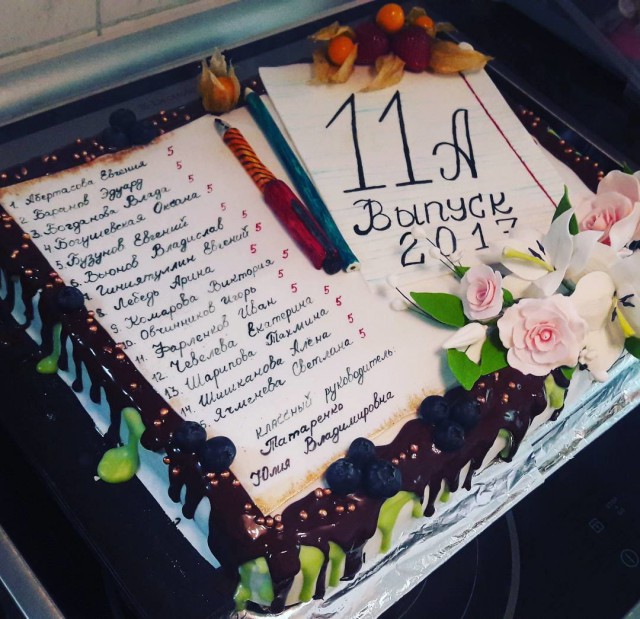 1. Авертасова Евгения 5
2. Баранов Эдуард 5
3. Богданова Влада 5
4. Богушевская Оксана 5
5. Бузунов Евгений 5
6. Вьюнов Владислав 5
7. Гиниятулин Евгений 5
8. Лебедь Арина 5
9. Комарова Виктория 5
10. Овчинников Игорь 5
11. Фарленков Иван 5
12. Чевелева Екатерина 5
13. Шарипова Тахмина 5
14. Шишканова Алена 5
15. Ячменева Светлана 5
классный руководитель:
Татаренко
Юлия Владимировна
11А
Выпуск
2017